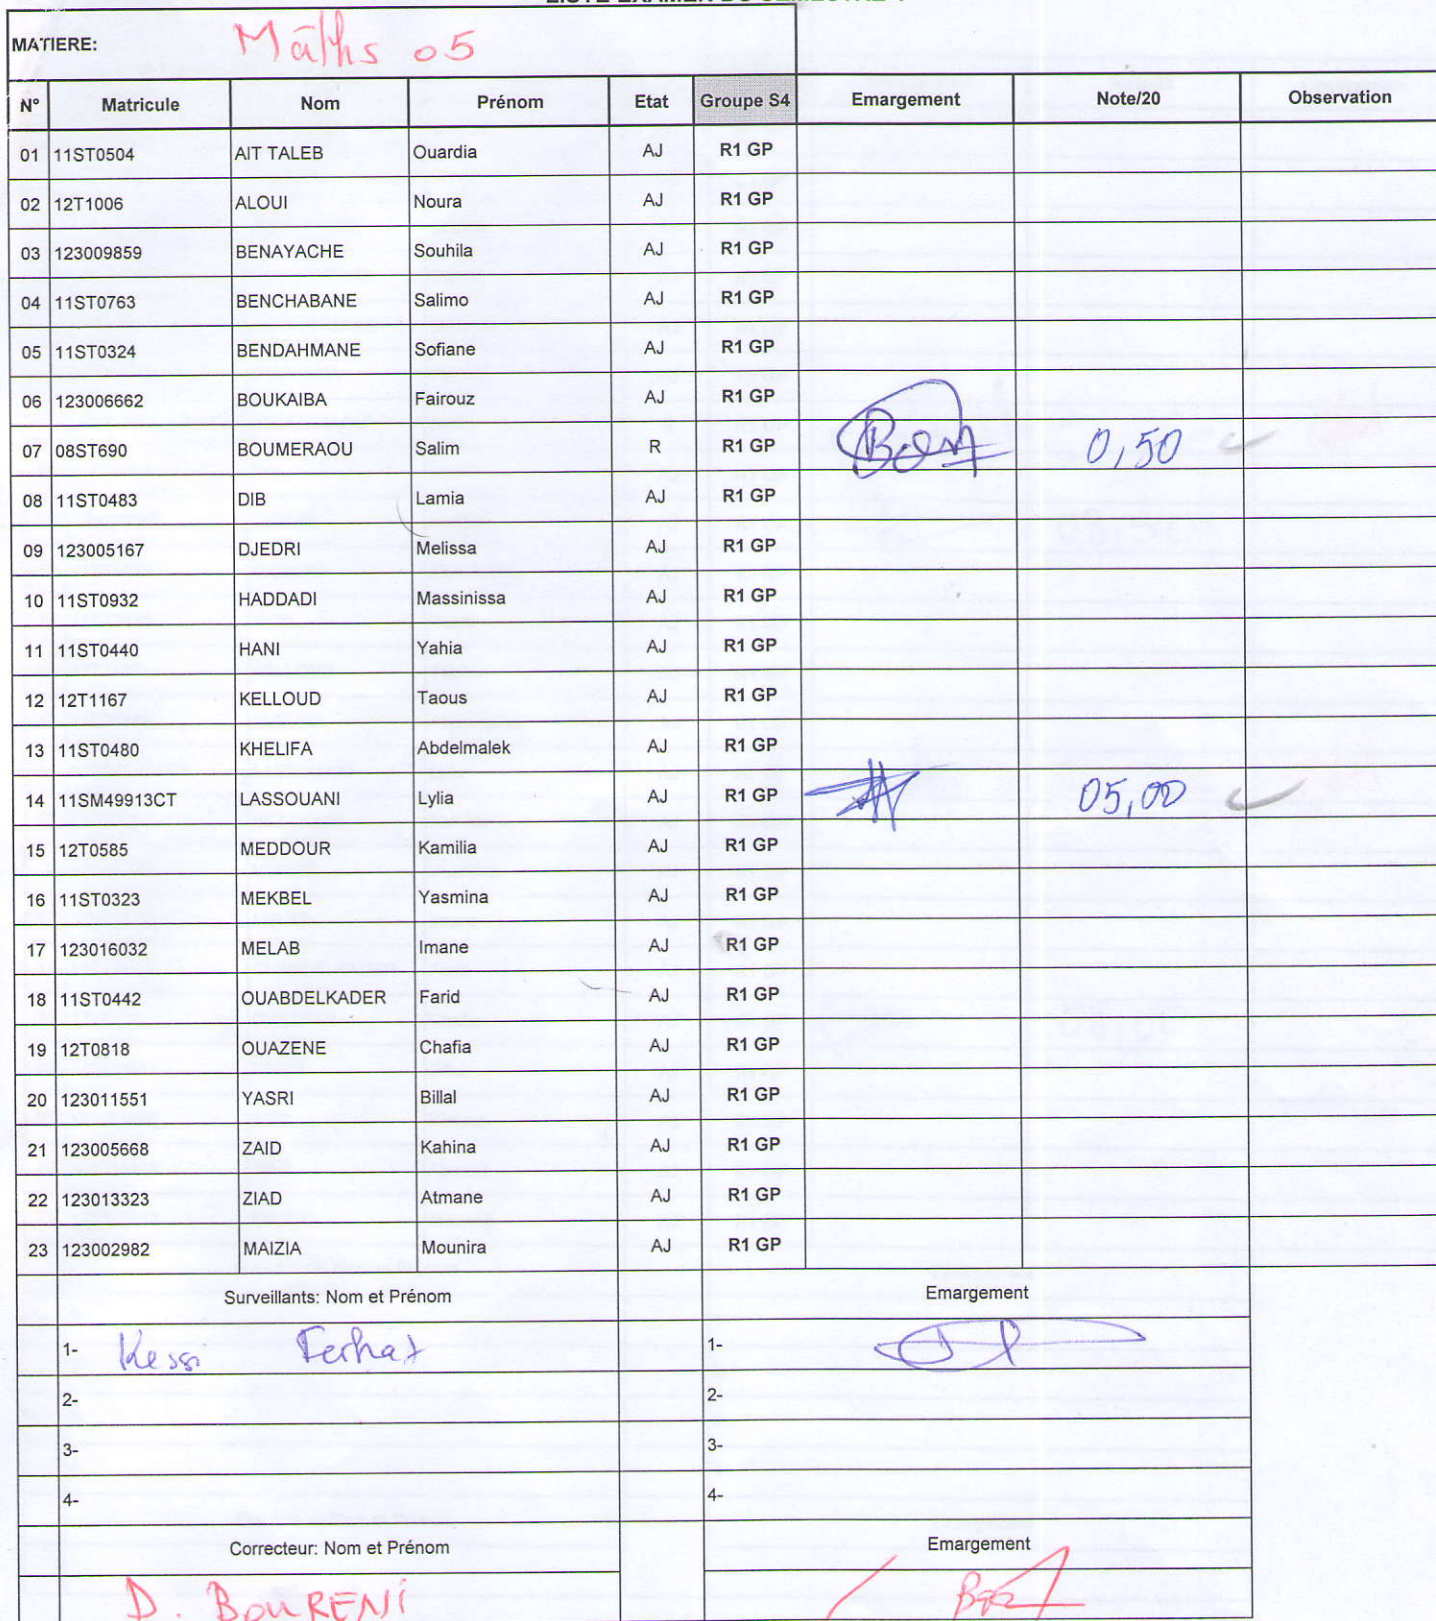 MATIERE: Māths 05
N° Matricule Nom Prénom Etat Groupe S4 Emargement Note/20 Observation
01 11ST0504 AIT TALEB Ouardia AJ R1 GP
02 12T1006 ALOUI Noura AJ R1 GP
03 123009859 BENAYACHE Souhila AJ R1 GP
04 11ST0763 BENCHABANE Salimo AJ R1 GP
05 11ST0324 BENDAHMANE Sofiane AJ R1 GP
06 123006662 BOUKAIBA Fairouz AJ R1 GP
07 08ST690 BOUMERAOU Salim R R1 GP 0,50
08 11ST0483 DIB Lamia AJ R1 GP
09 123005167 DJEDRI Melissa AJ R1 GP
10 11ST0932 HADDADI Massinissa AJ R1 GP
11 11ST0440 HANI Yahia AJ R1 GP
12 12T1167 KELLOUD Taous AJ R1 GP
13 11ST0480 KHELIFA Abdelmalek AJ R1 GP
14 11SM49913CT LASSOUANI Lylia AJ R1 GP 05,00
15 12T0585 MEDDOUR Kamilia AJ R1 GP
16 11ST0323 MEKBEL Yasmina AJ R1 GP
17 123016032 MELAB Imane AJ R1 GP
18 11ST0442 OUABDELKADER Farid AJ R1 GP
19 12T0818 OUAZENE Chafia AJ R1 GP
20 123011551 YASRI Billal AJ R1 GP
21 123005668 ZAID Kahina AJ R1 GP
22 123013323 ZIAD Atmane AJ R1 GP
23 123002982 MAIZIA Mounira AJ R1 GP
Surveillants: Nom et Prénom Emargement
1- Kessi Ferhat 1-
2- 2-
3- 3-
4- 4-
Correcteur: Nom et Prénom Emargement
D. BOURENI